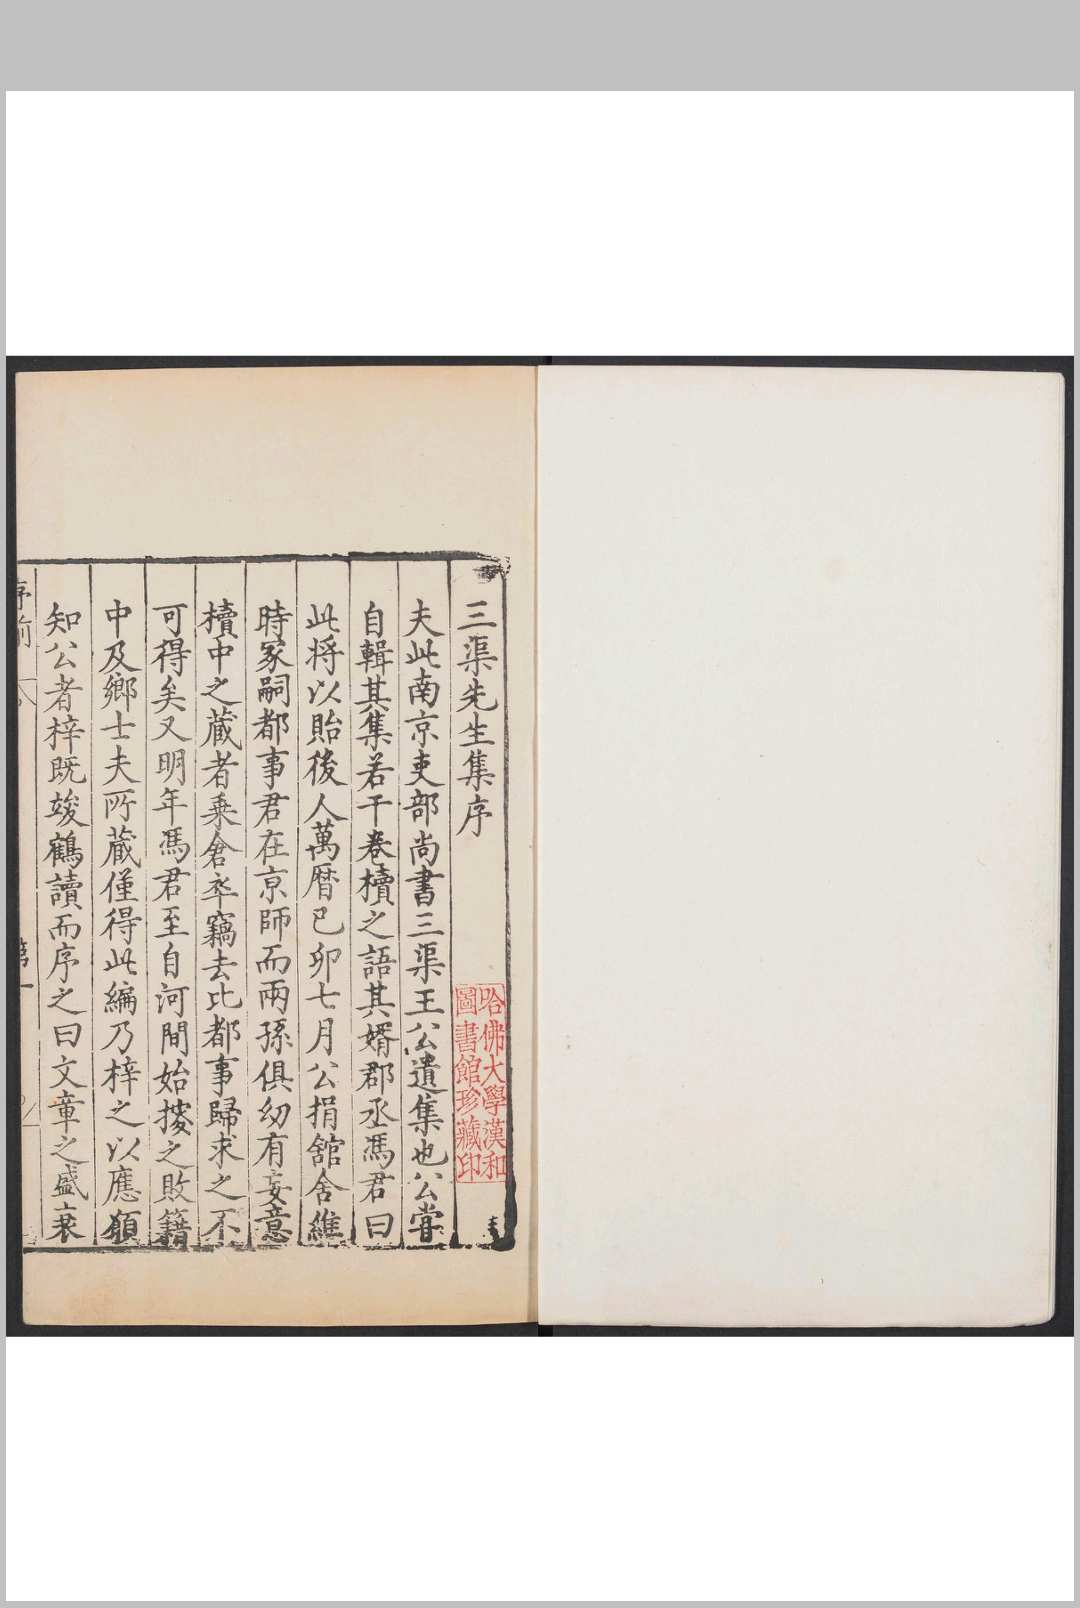 三渠先生集序
夫此南京吏部尚書三渠王公遺集也公嘗
自輯其集若干卷櫝之語其婿郡丞馮君曰
此將以貽後人萬曆己卯七月公捐舘舍維
時冢嗣都事君在京師而兩孫俱幼有妄意
櫝中之蔵者乗倉卒竊去比都事歸求之不
可得矣又明年馮君至自河間始搜之敗籍
中及鄉士夫所蔵僅得此編乃梓之以應願
知公者梓既竣鶴讀而序之曰文章之盛衰
序前
第一
哈佛大學漢和
圖書館珍藏印